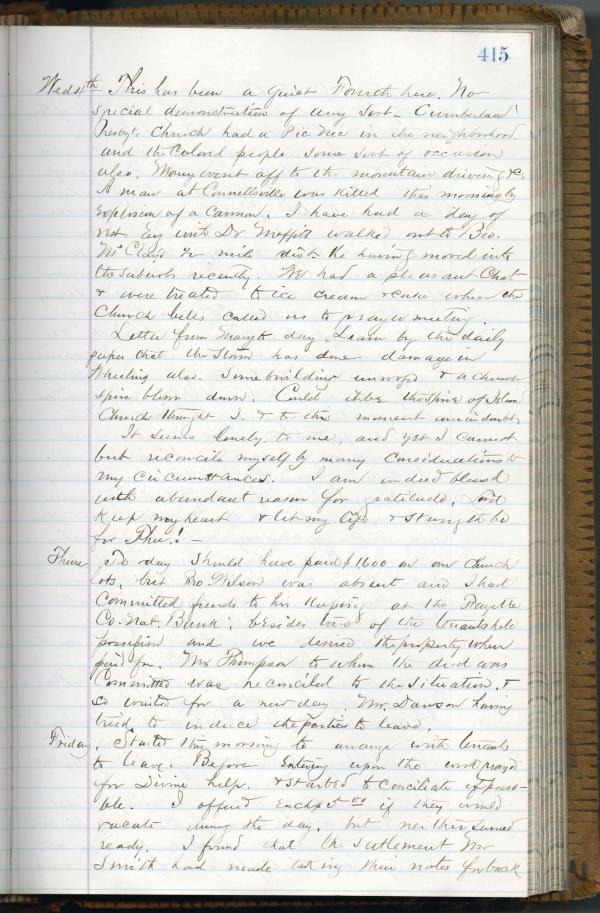 415
Weds 4th This has been a quiet Fourth here. No
special demonstration of any sort - Cumberland
Presbyt. Church had a Pic Nic in the neighborhood
and the Colored people some sort of occasion
also. Many went off to the mountain driving &c.
A man at Connellsville was killed this morning by
explosion of a cannon. I have had a day of
rest. Eve with Dr Moffitt walked out to Bro.
mile dist. he having moved into
the suburbs recently. We had a pleasant Chat
& were treated to ice cream & cake when the
Church bells called us to prayer meeting.
Letter from Mary to day. Learn by the daily
paper that the Storm has done damage in
Wheeling also. Some building unroofed & a church
spire blown down. Could it be the spire of Island
Church thought I. & to this moment am in doubt.
It seems lonely to me, and yet I cannot
but reconcile myself by many considerations to
my circumstances. I am indeed blessed
with abundant reason for gratitude. Lord
keep my heart & let my life & strength be
for Thee! -
Thurs. To day should have paid $1600 on our church
lots, but Bro Wilson was absent and I had
committed funds to his keeping at the Fayette
Co. Nat. Bank; besides two of the tenants hold
possession and we desired the property when
paid for. Mr. Thompson to whom the deed was
committed was reconciled to the situation, &
so waited for a new day. Mr. Dawson having
tried to induce the parties to leave.
Friday. Started this morning to arrange with tenants
to leave. Before entering upon the work prayed
for Divine help. & started to conciliate if possi-
ble. I offered each if they would
vacate during the day, but neither seemed
ready. I found that the settlement Mr
Smith had made taking their notes for back